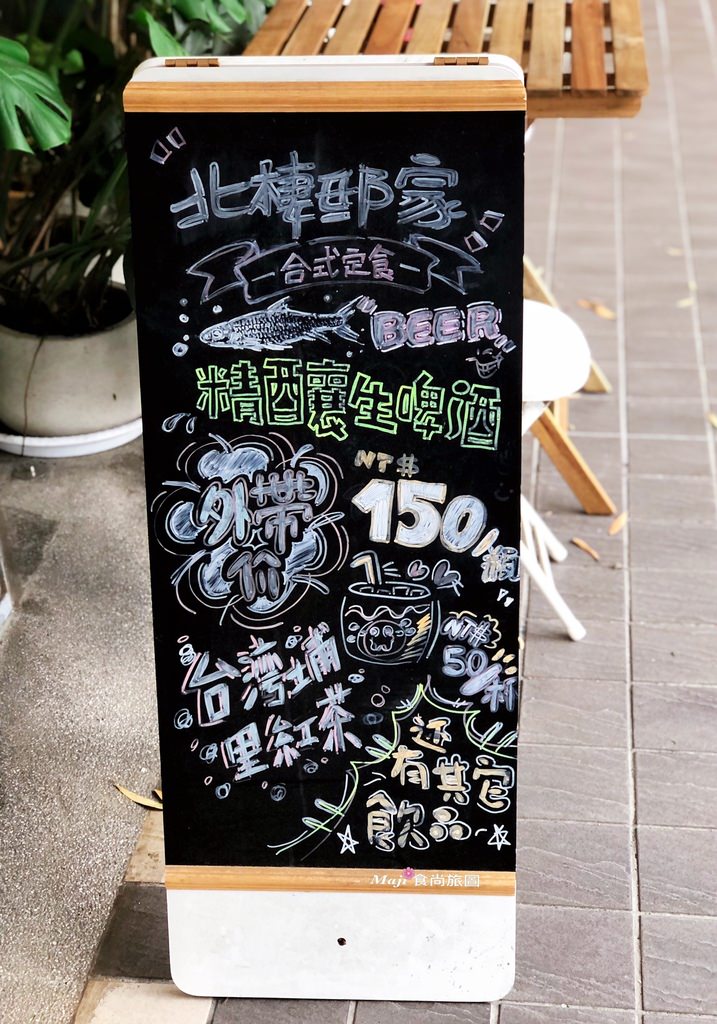 北棲邸家
台式定食
BEER
精釀生啤酒
外帶
价
NT$
150/瓶
NT$
50/杯
台灣埔
里紅茶
还
有其它
飲品
Maji 食尚旅圖